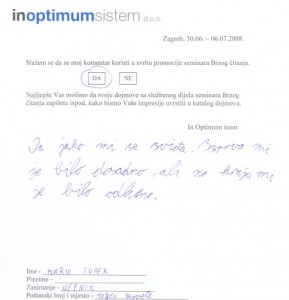 inoptimumsistem d.o.o.
Zagreb, 30.06. – 06.07.2008.
Slažem se da se moj komentar koristi u svrhu promocije seminara Brzog čitanja.
DA NE
Najljepše Vas molimo da svoje dojmove sa službenog dijela seminara Brzog
čitanja zapišete ispod, kako bismo Vaše impresije uvrstili u katalog dojmova.
In Optimum team
jako mi se sviđa. Isprva mi
je bilo dosadno, ali na kraju mi
je bilo odlično.
Ime -
Prezime -
Zanimanje - UČENIK
Poštanski broj i mjesto - 10000